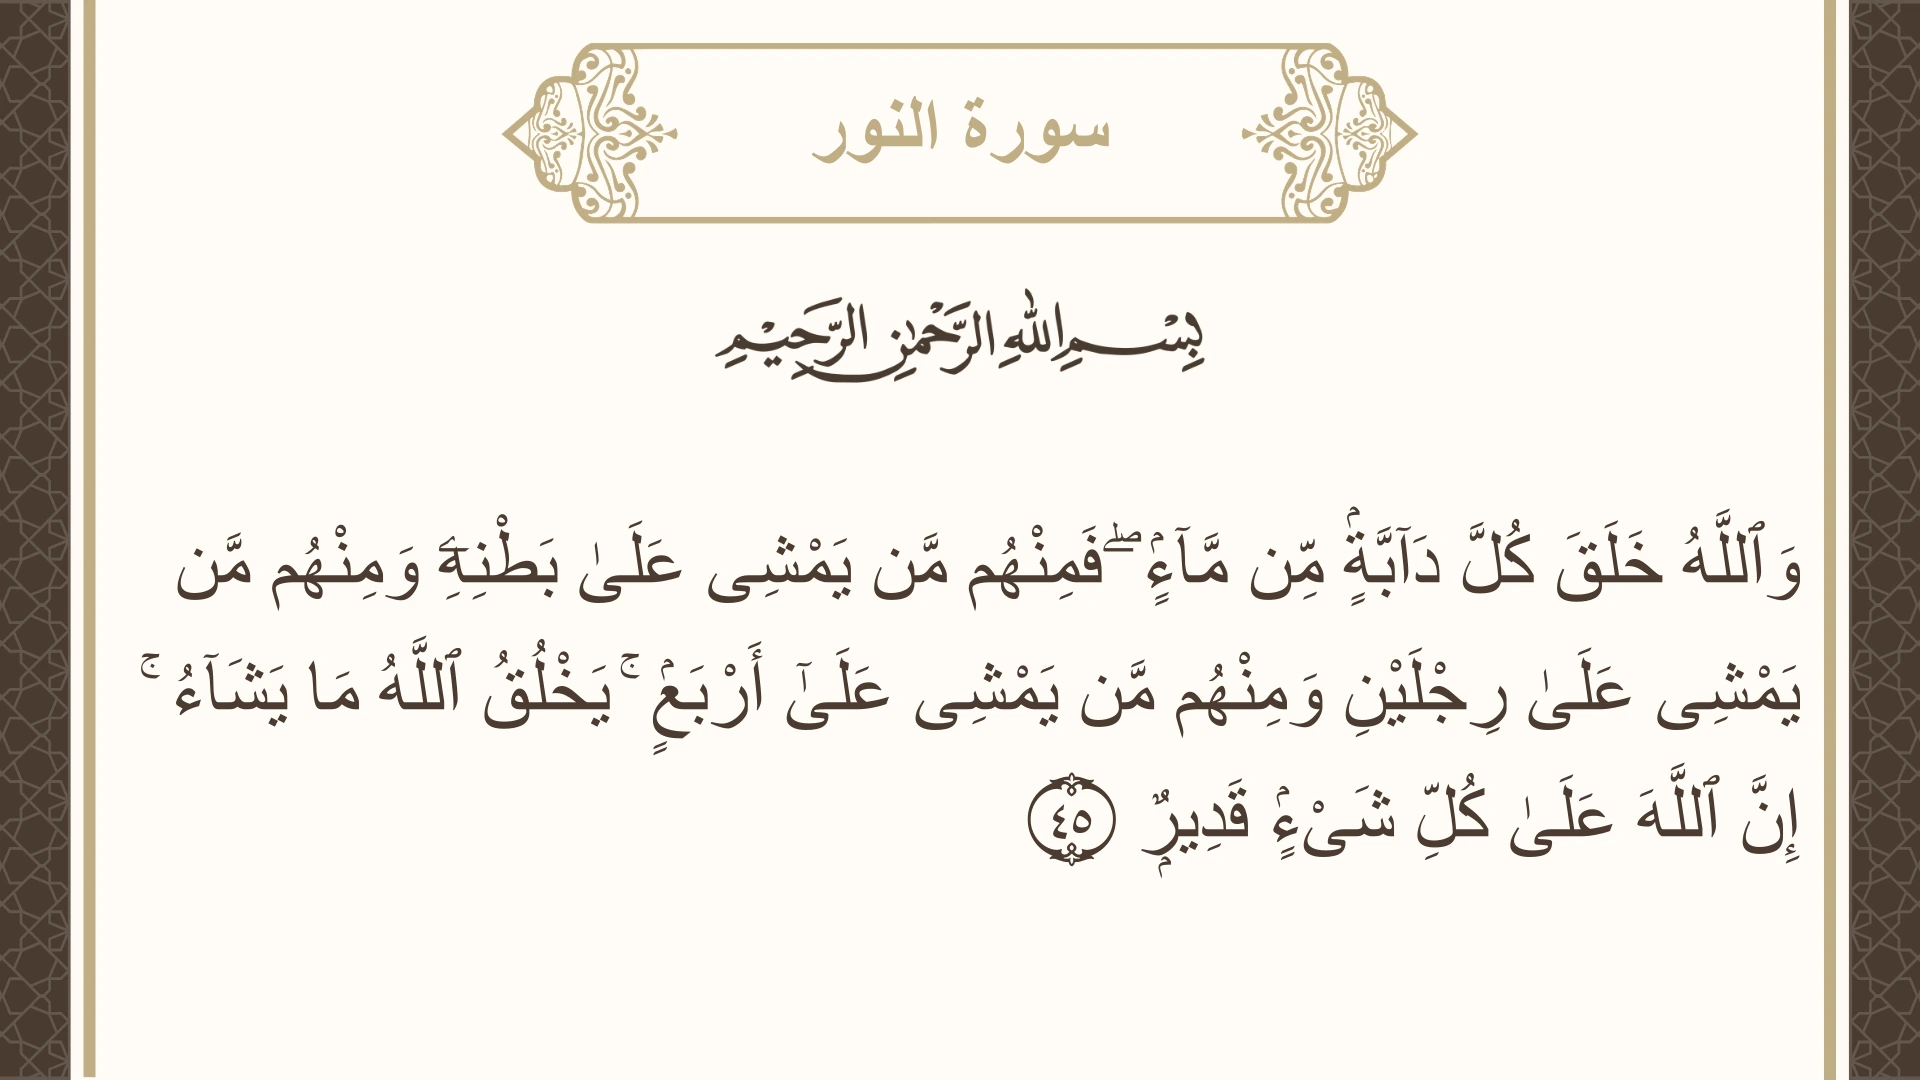 سورة النور
بِسْمِ اللهِ الرَّحْمٰنِ الرَّحِيْمِ
وَٱللَّهُ خَلَقَ كُلَّ دَآبَّةٍۢ مِّن مَّآءٍۢ ۖ فَمِنْهُم مَّن يَمْشِى عَلَىٰ بَطْنِهِۦ وَمِنْهُم مَّن
يَمْشِى عَلَىٰ رِجْلَيْنِ وَمِنْهُم مَّن يَمْشِى عَلَىٰٓ أَرْبَعٍۢ ۚ يَخْلُقُ ٱللَّهُ مَا يَشَآءُ ۚ
إِنَّ ٱللَّهَ عَلَىٰ كُلِّ شَىْءٍۢ قَدِيرٌۭ ٤٥